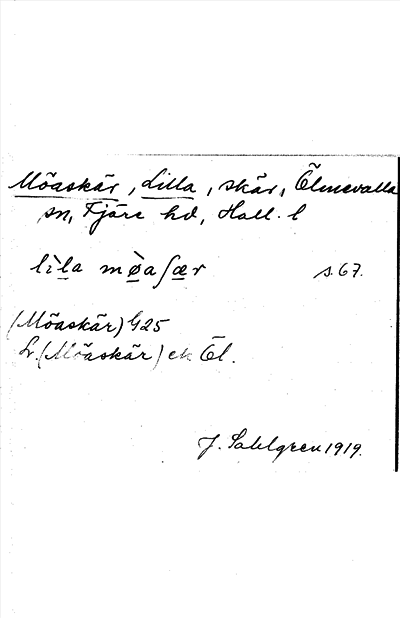 Möaskär, Lilla, skär, Ölmevalla
sn, Fjäre hd, Hall. l
lìla mø̀aʃær s.67.
(Möaskär) G25
Lr. (Möaskär) ek Öl.
J. Sahlgren 1919.